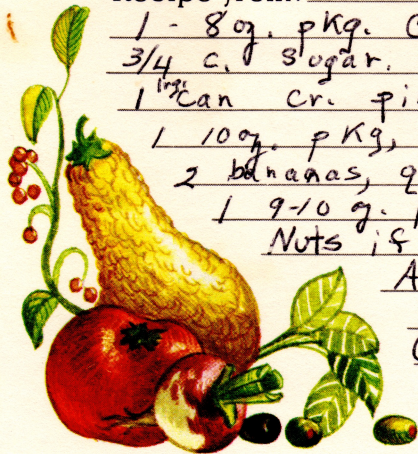 Recipe from:
1 - 8 oz. pkg. C
3/4 c. sugar.
1 lrg. can cr. pi
1 10 oz. pkg,
2 bananas, q
1 9-10 oz. p
Nuts if
A